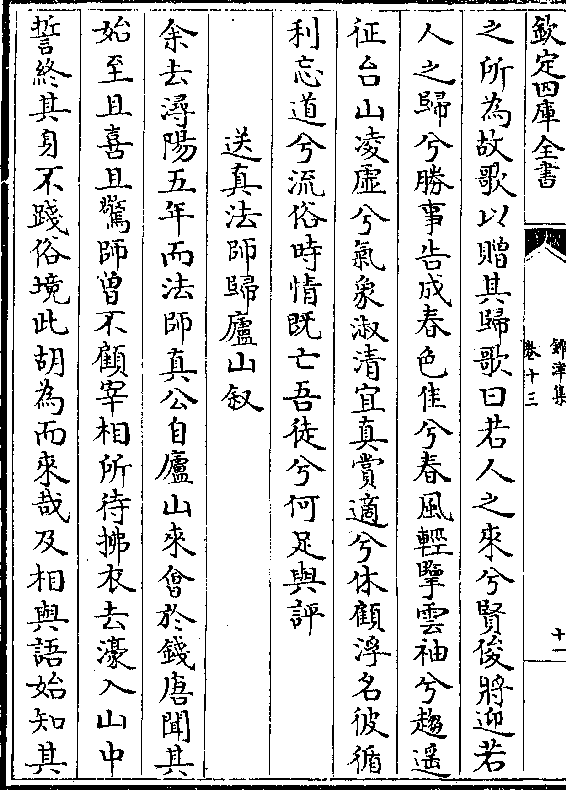 欽定四庫全書
鐔津集
卷十三
十一
之所為故歌以贈其歸歌曰若人之來兮賢俊將迎若
人之歸兮勝事告成春色佳兮春風輕擎雲袖兮趨遥
征台山凌虛兮氣象淑清宜真賞適兮休顧浮名彼循
利忘道兮流俗時情既亡吾徒兮何足與評
送真法師歸廬山叙
余去潯陽五年而法師真公自廬山來會於錢唐聞其
始至且喜且驚師曾不顧宰相所待拂衣去濠入山中
誓終其身不踐俗境此胡為而來哉及相與語始知其